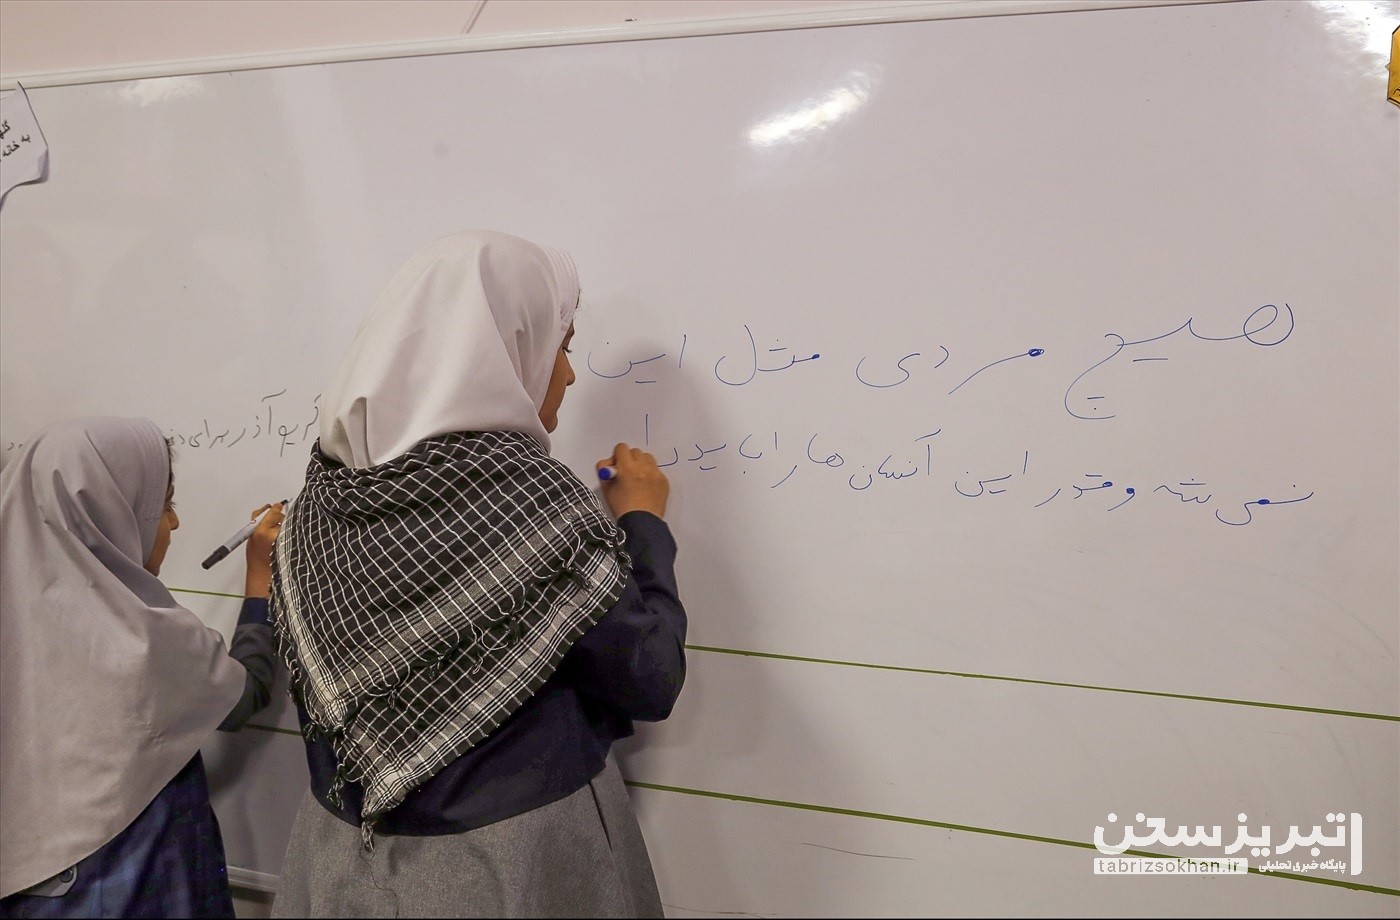 هیچ مردی مثل این
نمی شه و قدر این آنسان ها را باید دا
آذر برای
به خانه
تبریز سخن
پایگاه خبری تحلیلی
tabrizsokhan.ir